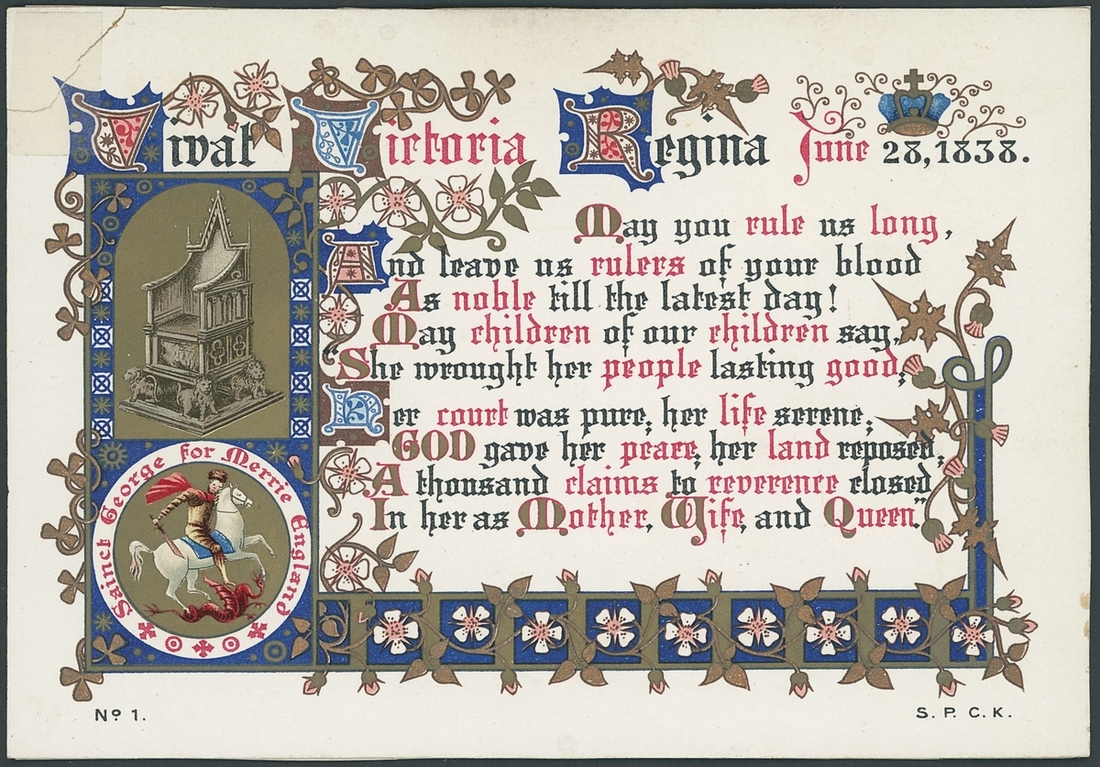 Vivat Victoria Regina June 28, 1838.
May you rule us long,
And leave us rulers of your blood
As noble till the latest day!
May children of our children say,
"She wrought her people lasting good;
Her court was pure; her life serene;
GOD gave her peace; her land reposed;
A thousand claims to reverence closed
In her as Mother, Wife, and Queen."
Sainct George for Merrie England
No 1.
S. P. C. K.